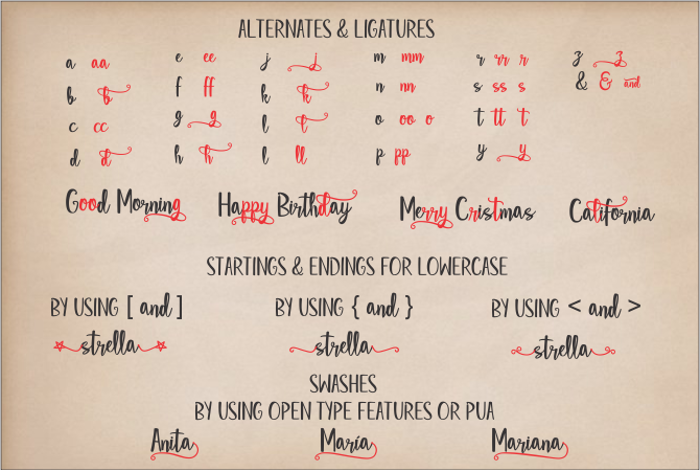 ALTERNATES & LIGATURES
a aa e ee j j m mm r rr r z z
b b f ff k k n nn s ss s & & and
c cc g g l l o oo o t tt t
d d h h l ll p pp y y
Good Morning Happy Birthday Merry Cristmas California
STARTINGS & ENDINGS FOR LOWERCASE
BY USING [ and ] BY USING { and } BY USING < and >
strella strella strella
SWASHES
BY USING OPEN TYPE FEATURES OR PUA
Anita Maria Mariana